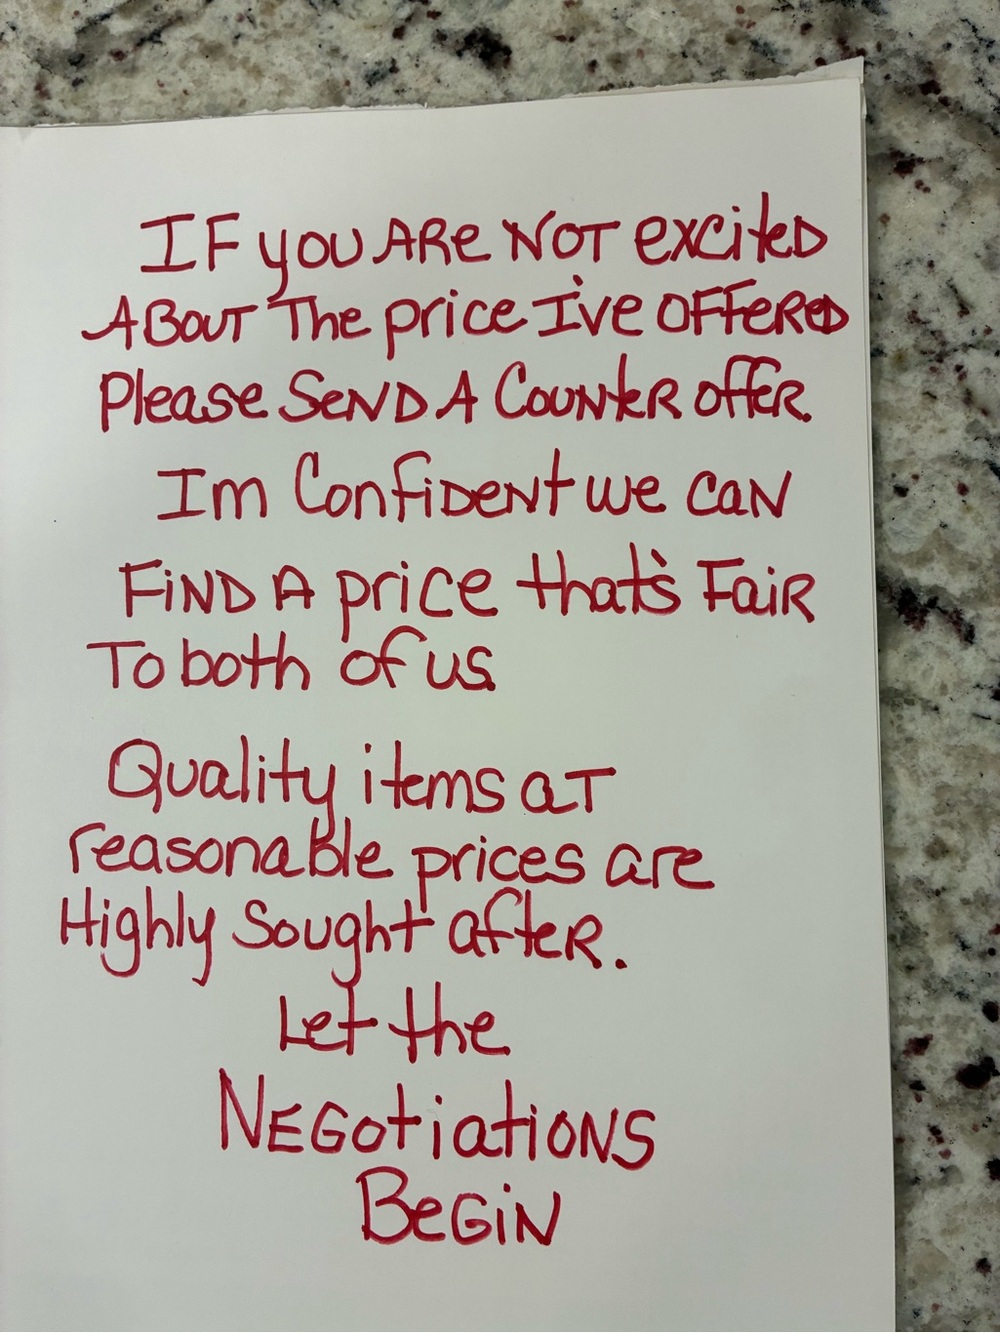 IF you ARe NOT excited
ABOUT The price I've OFFeReD
Please SeND A CouNteR offeR.
Im ConfiDeNt we caN
FiND A price that's FaiR
To both of us.
Quality items aT
reasonable prices are
Highly Sought afteR.
Let the
NEGotiatiONS
BeGiN